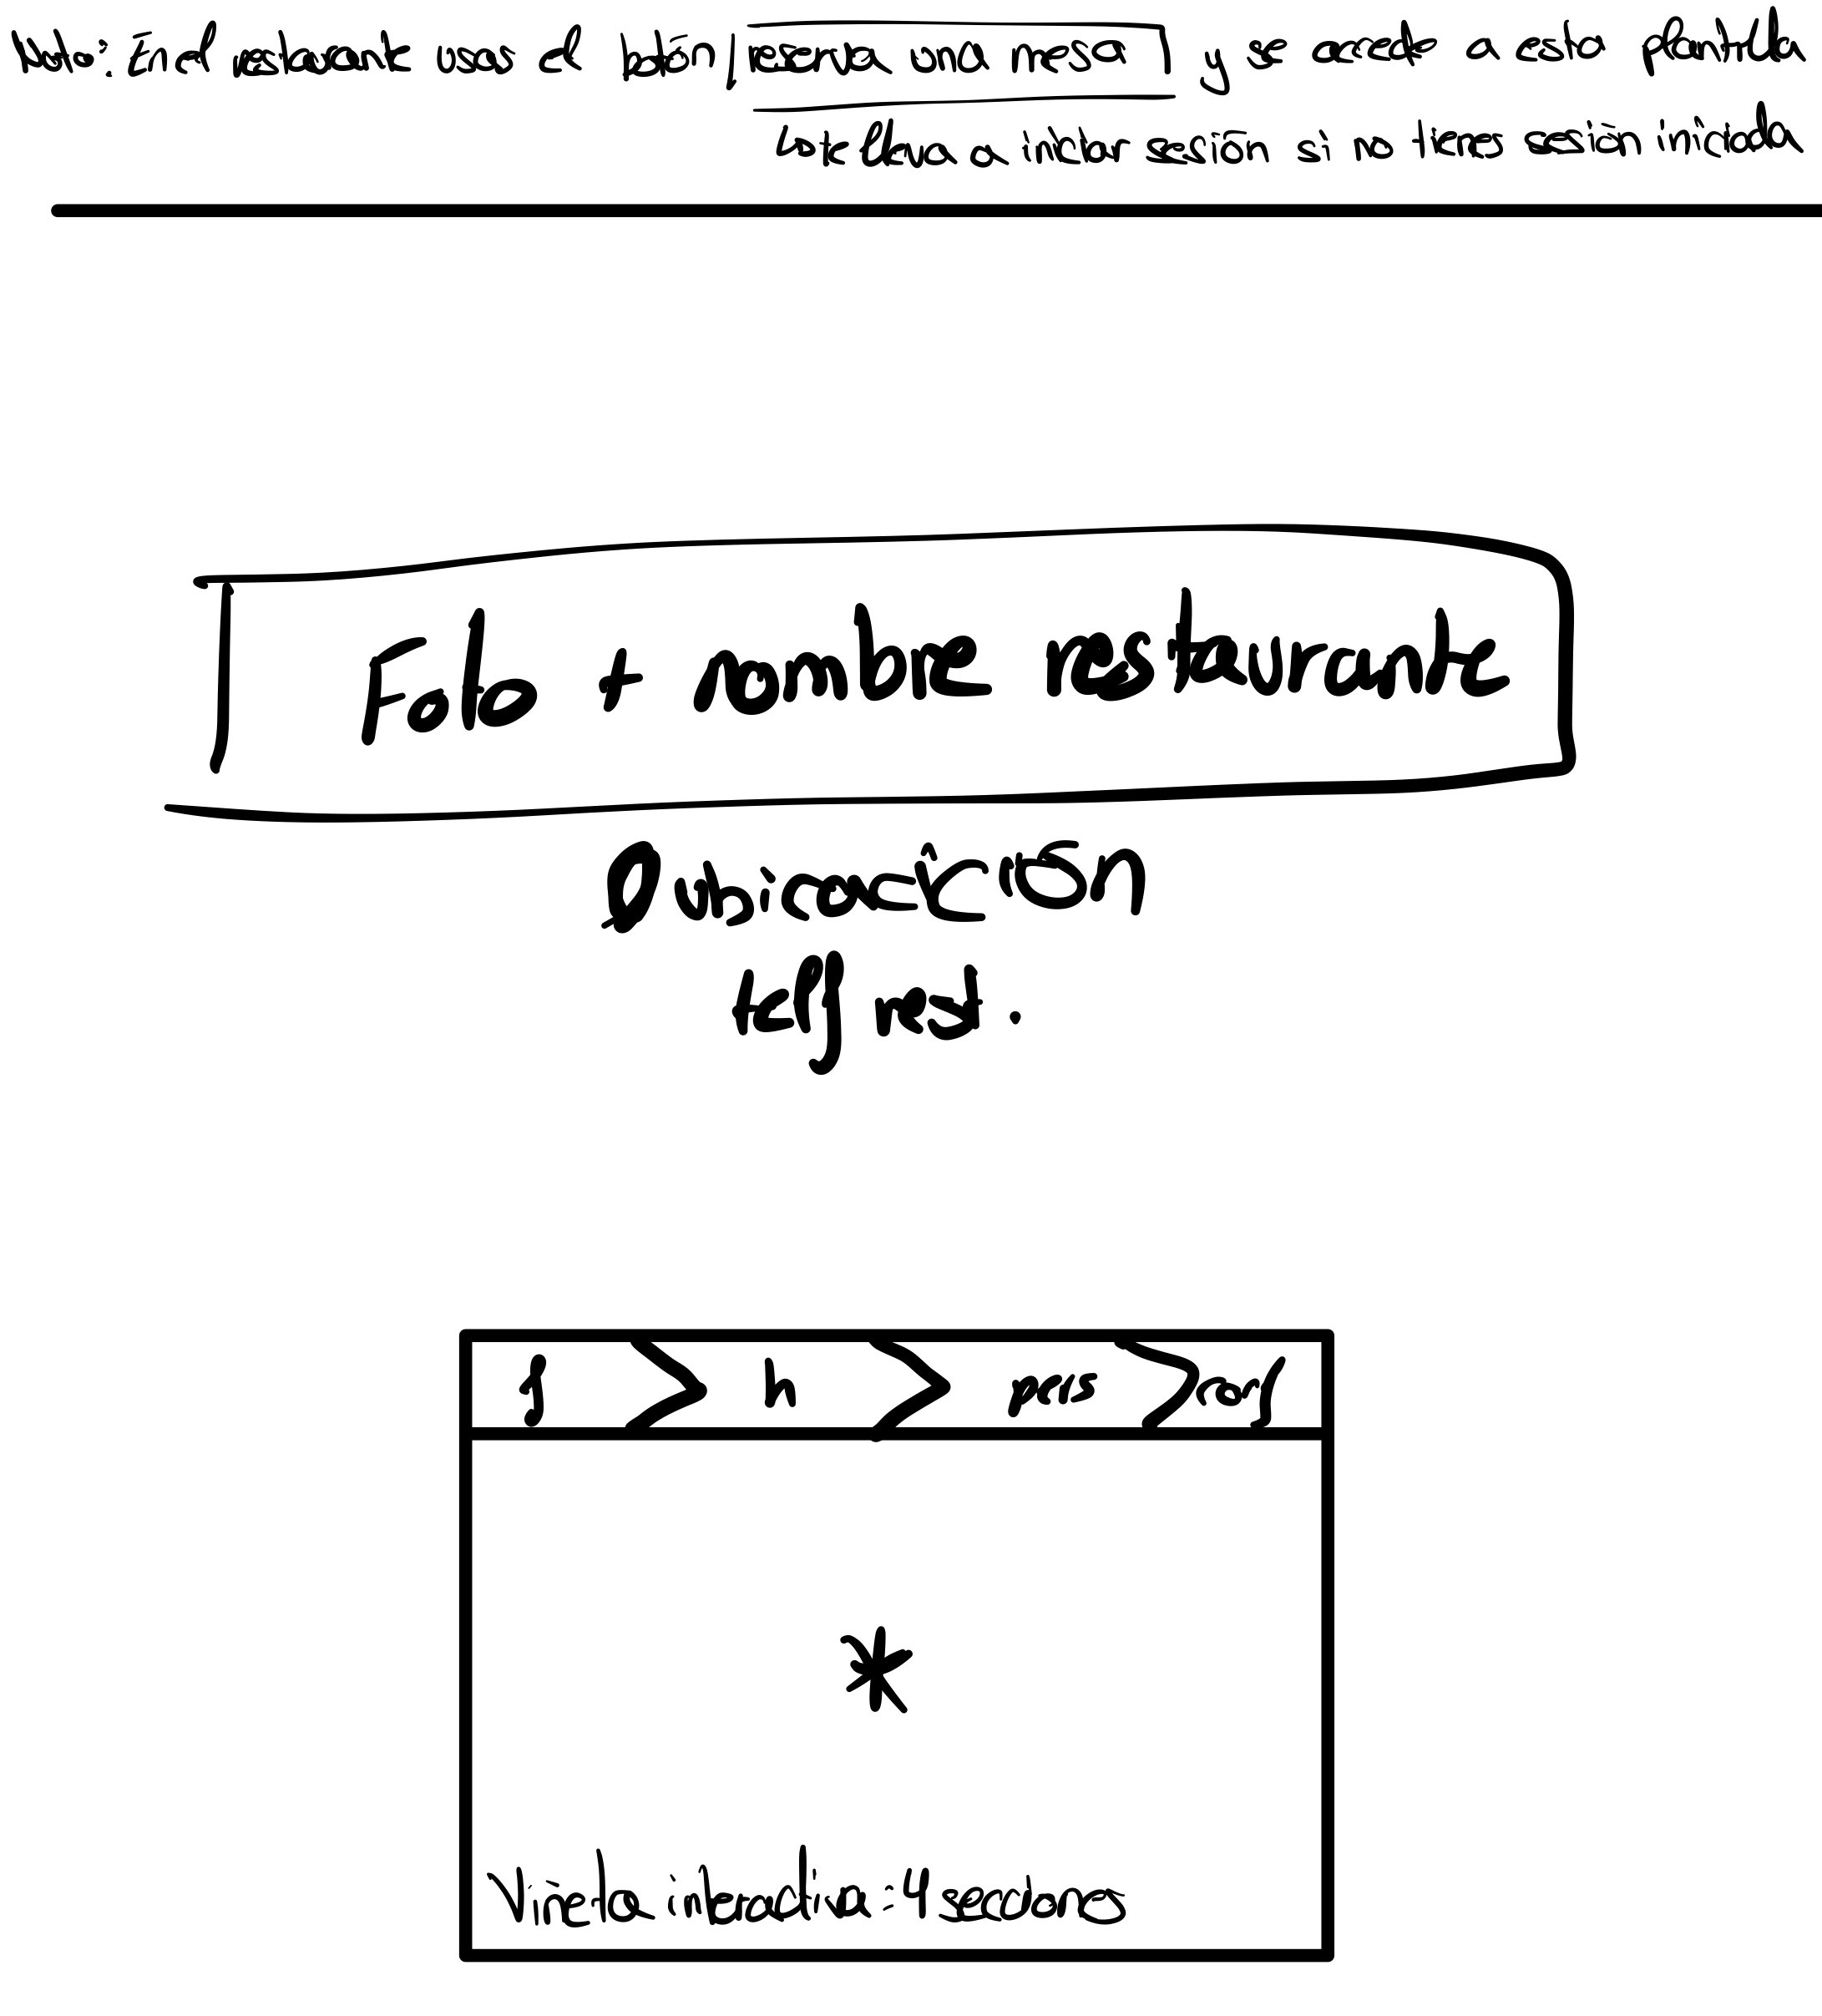 en el restaurante usas el botón reserva una mesa y se accede a esta pantalla
te lleva a iniciar sesión si no tienes sesión iniciada
Foto + nombre restaurante
ubicación
telf rest.
f h pers conf
*
Viñeta interactiva: 4 secciones